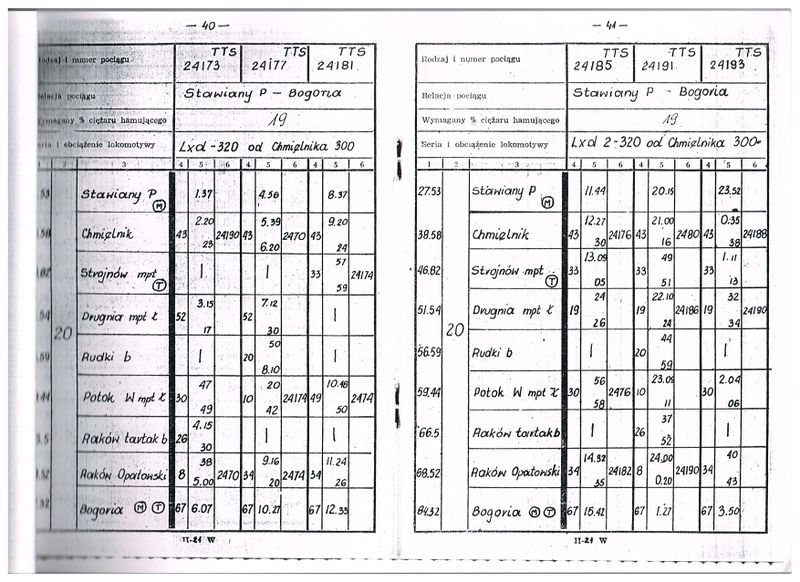 — 40 —
Rodzaj i numer pociągu TTS 24173 TTS 24177 TTS 24181
Relacja pociągu Stawiany P – Bogoria
Wymagany % ciężaru hamującego 19
Seria i obciążenie lokomotywy Lxd-320 od Chmielnika 300
1 2 3 4 5 6 4 5 6 4 5 6
53 Stawiany P M 1.37 4.56 8.37
58 Chmielnik 43 2.20 23 24190 43 5.39 6.20 2470 43 9.20 24
Strojnów mpt T | | 33 57 59 24174
54 Drugnia mpt Ł 52 3.15 17 52 7.12 30 |
20
Rudki b | 20 50 8.10 |
44 Potok W mpt Ł 30 47 49 10 20 42 24174 49 10.48 50 2474
Raków tartak b 26 4.15 30 | |
Raków Opatowski 8 38 5.00 2470 34 9.16 20 2474 34 11.24 26
Bogoria M T 67 6.07 67 10.27 67 12.33
II-21 W
— 41 —
Rodzaj i numer pociągu TTS 24185 TTS 24191 TTS 24193
Relacja pociągu Stawiany P – Bogoria
Wymagany % ciężaru hamującego 19
Seria i obciążenie lokomotywy Lxd 2-320 od Chmielnika 300
1 2 3 4 5 6 4 5 6 4 5 6
27.53 Stawiany P M 11.44 20.15 23.52
38.58 Chmielnik 43 12.27 30 24176 43 21.00 16 2480 43 0.35 38 24188
46.82 Strojnów mpt T 33 13.03 05 33 49 51 33 1.11 13
51.54 Drugnia mpt Ł 19 24 26 19 22.10 24 24186 19 32 34 24190
20
56.59 Rudki b | 20 44 59 |
59.44 Potok W mpt Ł 30 56 58 2476 10 23.09 11 30 2.04 06
66.5 Raków tartak b | 26 37 52 |
68.52 Raków Opatowski 34 14.32 35 24182 8 24.00 0.20 24190 34 40 43
84.32 Bogoria M T 67 15.42 67 1.27 67 3.50
II-21 W